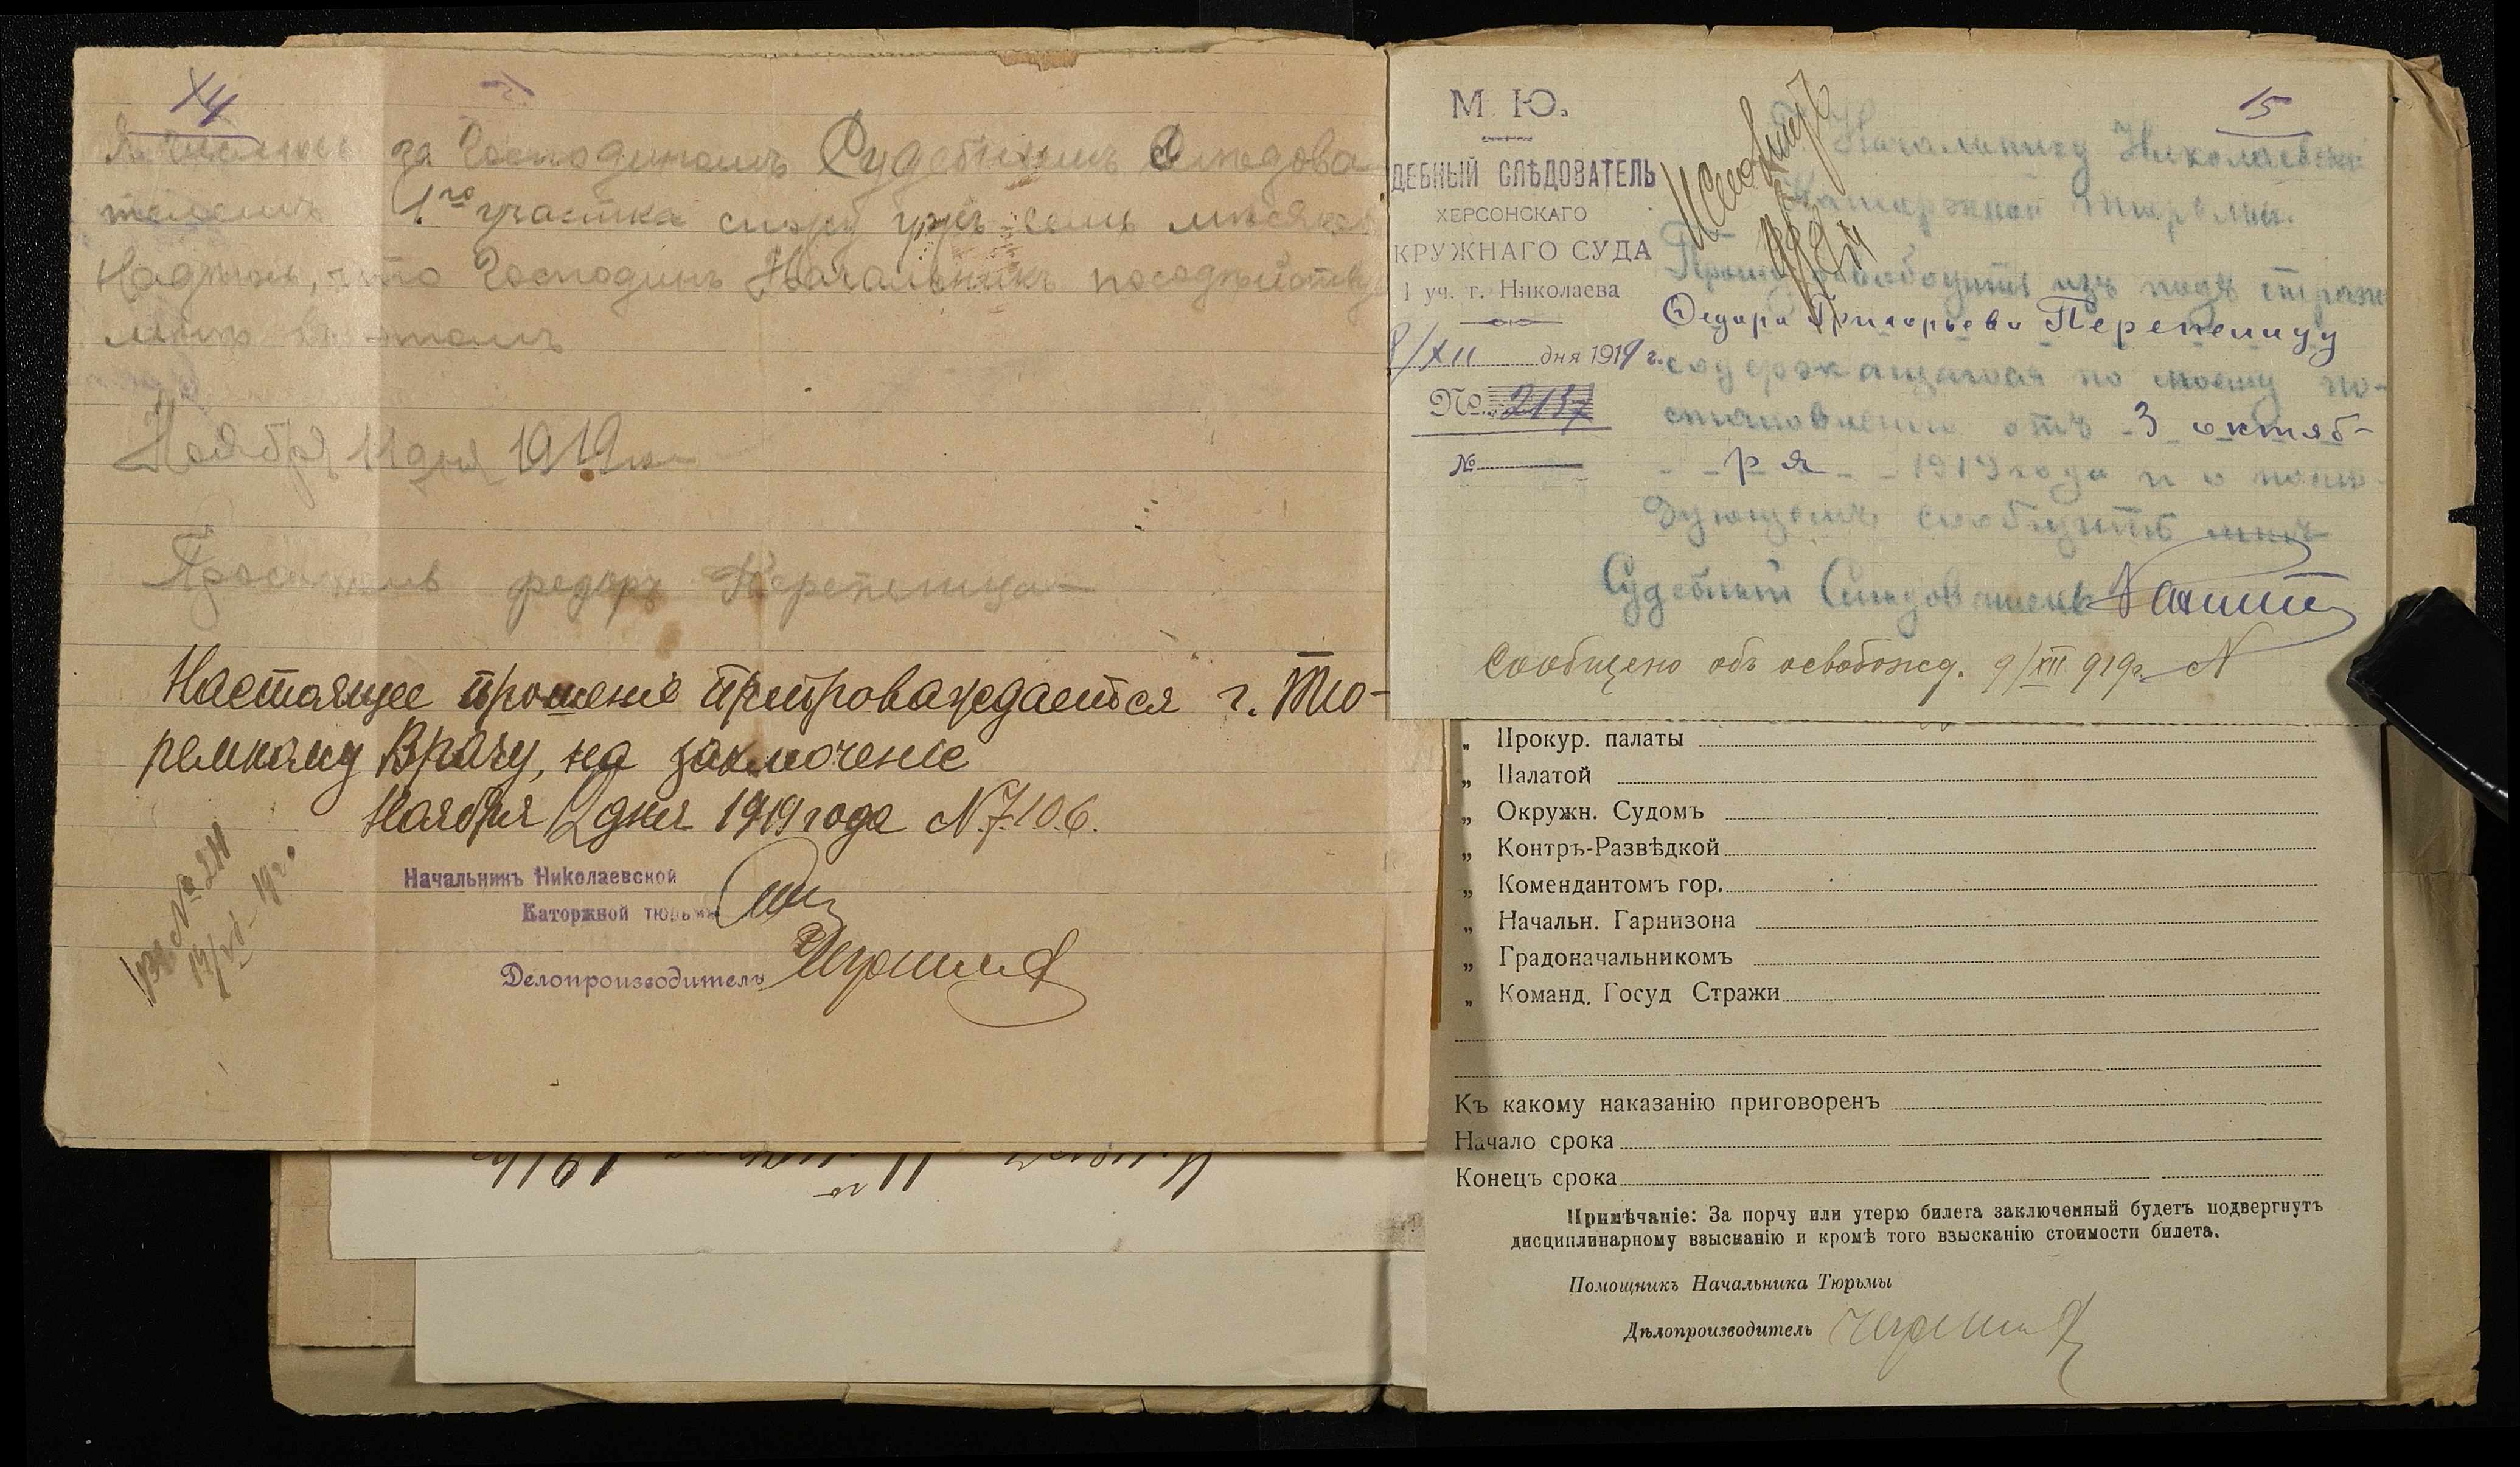 14
Я числюсь за Господиномъ Судебнымъ Следова-
телемъ 1го участка сижу уже семь месяцевъ
Надеюсь, что Господинъ Начальникъ посодействуе
мне въ этомъ
Ноября 11 дня 1919 го
Проситель Федоръ Перепелица
Настоящее прошеніе препровождается г. Тю-
ремному Врачу, на заключеніе
Ноября 12 дня 1919 года N 7106.
Начальникъ Николаевской
Каторжной тюрьмы
Делопроизводитель
15
М. Ю.
ДЕБНЫЙ СЛѢДОВАТЕЛЬ
ХЕРСОНСКАГО
КРУЖНАГО СУДА
1 уч. г. Николаева
8/XII дня 1919 г.
No. 2137
№
Исполнить
Начальнику Николаевской
Каторжной тюрьмы.
Прошу освободить изъ подъ стражи
Федора Григорьева Перепелицу
содержащагося по моему по-
становленію отъ 3 октяб-
ря 1919 года и о после-
дующемъ сообщить мне
Судебный Следователь
Сообщено объ освобожд. 9/XII 919 г.
„ Прокур. палаты
„ Палатой
„ Окружн. Судомъ
„ Контръ-Развѣдкой
„ Комендантомъ гор.
„ Начальн. Гарнизона
„ Градоначальникомъ
„ Команд. Госуд Стражи
Къ какому наказанію приговоренъ
Начало срока
Конецъ срока
Примѣчаніе: За порчу или утерю билета заключенный будетъ подвергнутъ
дисциплинарному взысканію и кромѣ того взысканію стоимости билета.
Помощникъ Начальника Тюрьмы
Дѣлопроизводитель